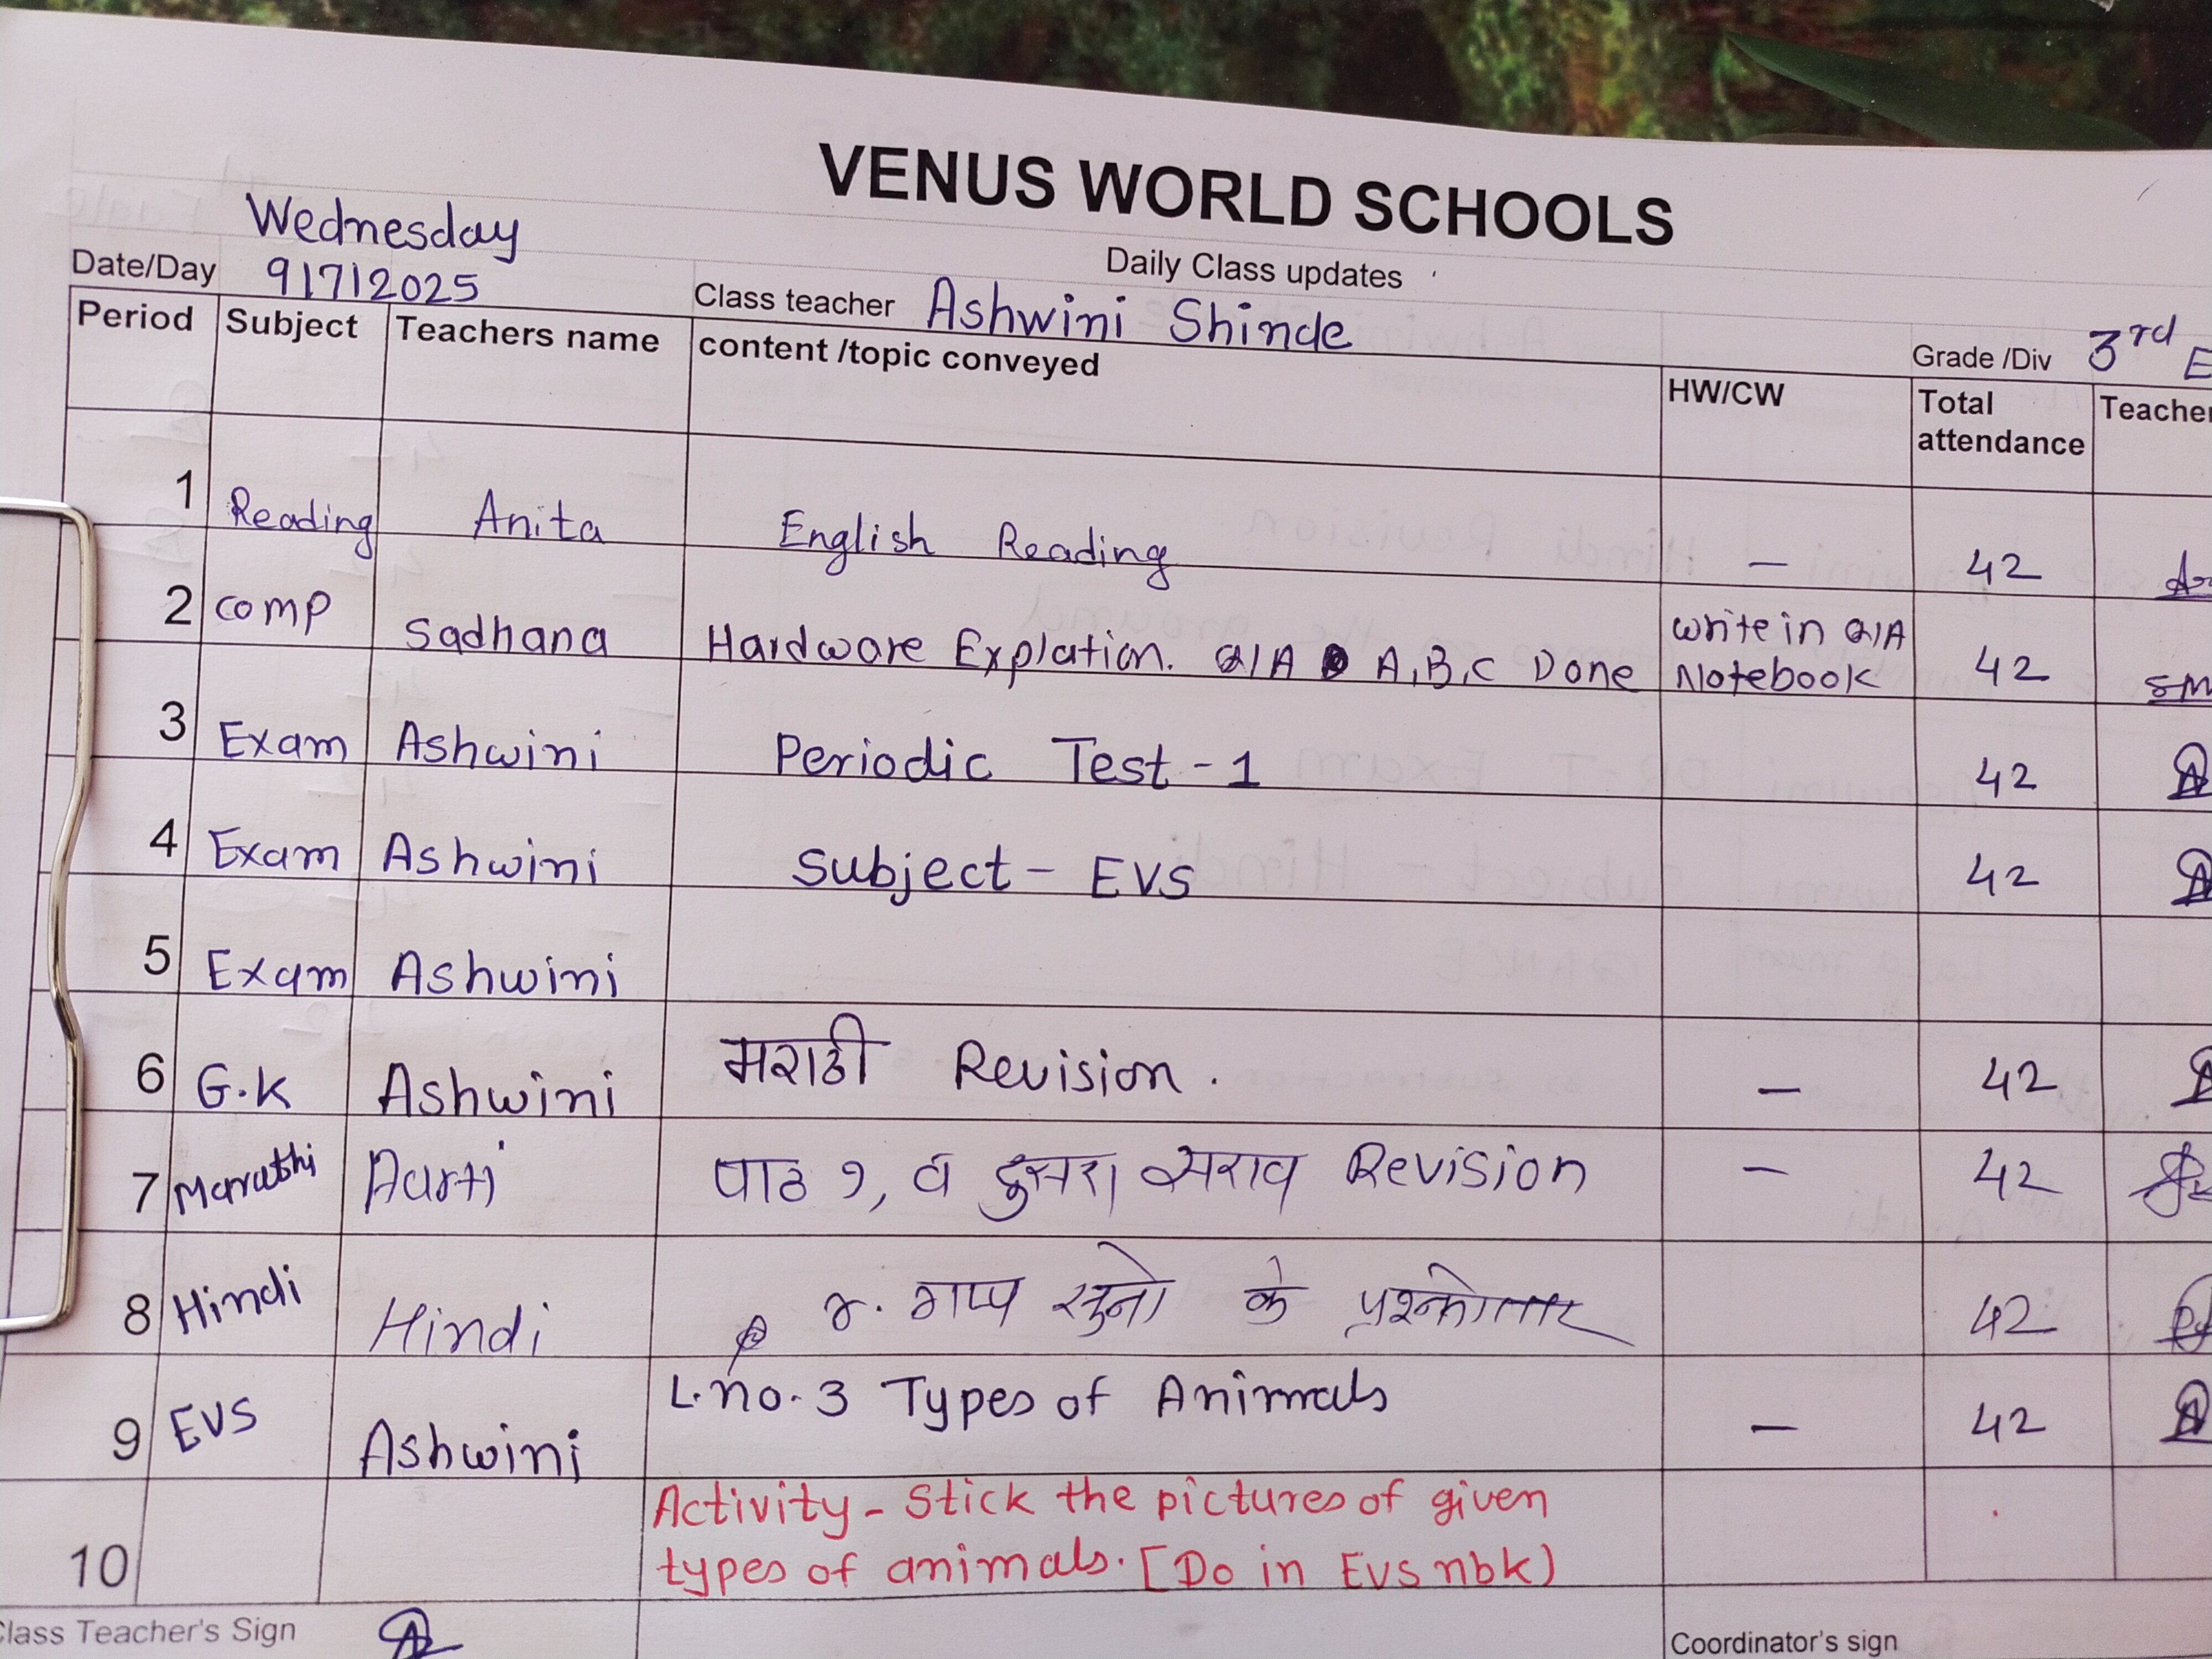 VENUS WORLD SCHOOLS
Daily Class updates
Wednesday
Date/Day 9/7/2025 Class teacher Ashwini Shinde Grade /Div 3rd E
Period Subject Teachers name content /topic conveyed HW/CW Total attendance Teacher
1 Reading Anita English Reading — 42
2 comp Sadhana Hardware Explation. Q/A A,B,C Done write in Q/A Notebook 42
3 Exam Ashwini Periodic Test - 1 42
4 Exam Ashwini Subject - EVS 42
5 Exam Ashwini
6 G.K Ashwini मराठी Revision. — 42
7 Marathi Aarti पाठ १, व दुसरा सराव Revision — 42
8 Hindi Hindi गप्प सुनो के प्रश्नोत्तर 42
9 EVS Ashwini L.no.3 Types of Animals — 42
10 Activity - Stick the pictures of given
types of animals. [Do in EVS nbk)
Class Teacher's Sign Coordinator's sign